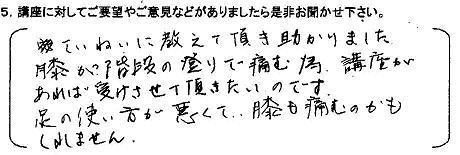 5. 講座に対してご要望やご意見などがありましたら是非お聞かせ下さい。
ていねいに教えて頂き助かりました
膝が階段の登りで痛む為、講座が
あれば受けさせて頂きたいのです。
足の使い方が悪くて、膝も痛むのかも
しれません。